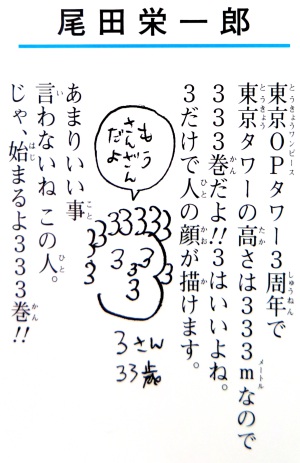 尾田栄一郎
東京OPタワー3周年で
東京タワーの高さは333mなので
333巻だよ!!3はいいよね。
3だけで人の顔が描けます。
もう
さんざん
だよ
3さん
33歳
あまりいい事
言わないね この人。
じゃ、始まるよ333巻!!